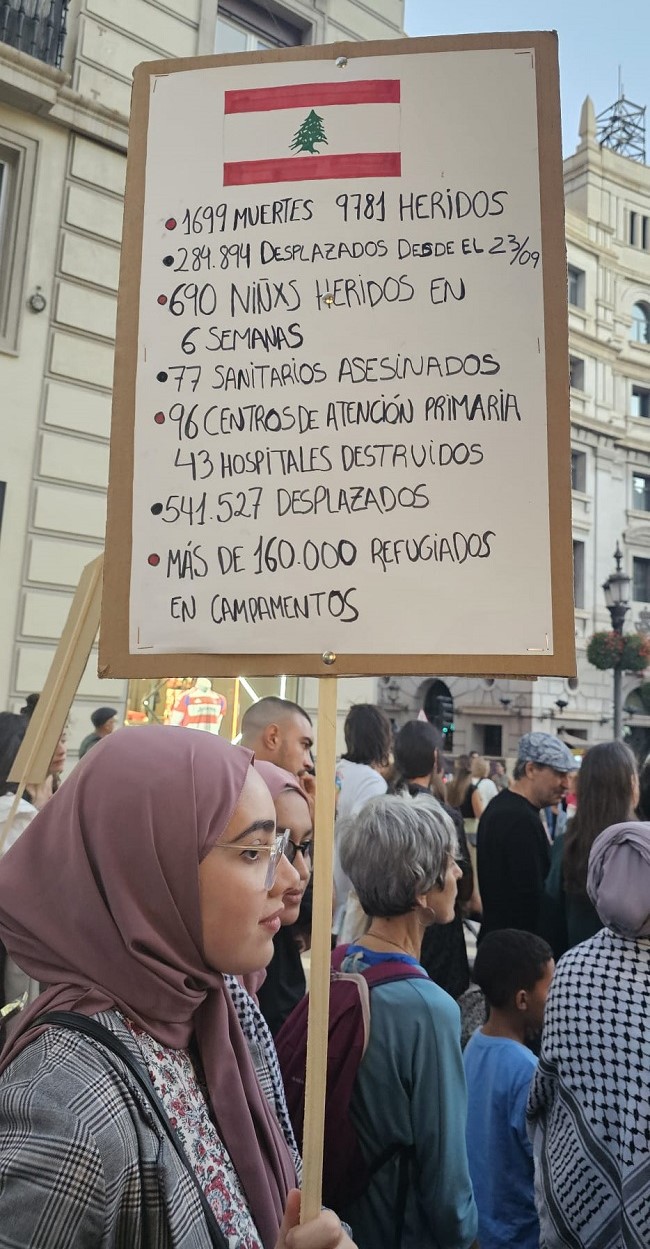 • 1699 MUERTES 9781 HERIDOS
• 284.894 DESPLAZADOS DESDE EL 23/09
• 690 NIÑXS HERIDOS EN
6 SEMANAS
• 77 SANITARIOS ASESINADOS
• 96 CENTROS DE ATENCIÓN PRIMARIA
43 HOSPITALES DESTRUIDOS
• 541.527 DESPLAZADOS
• MÁS DE 160.000 REFUGIADOS
EN CAMPAMENTOS